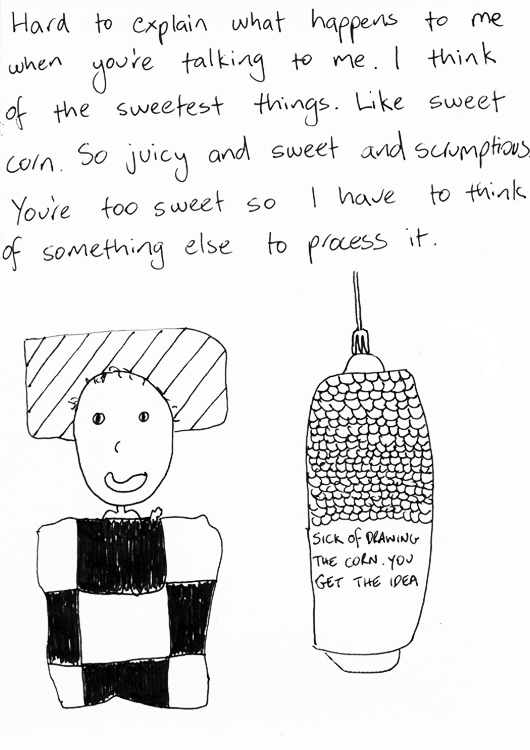 Hard to explain what happens to me
when you're talking to me. I think
of the sweetest things. Like sweet
corn. So juicy and sweet and scrumptious.
You're too sweet so I have to think
of something else to process it.
SICK of DRAWING
THE CORN. YOU
GET THE IDEA